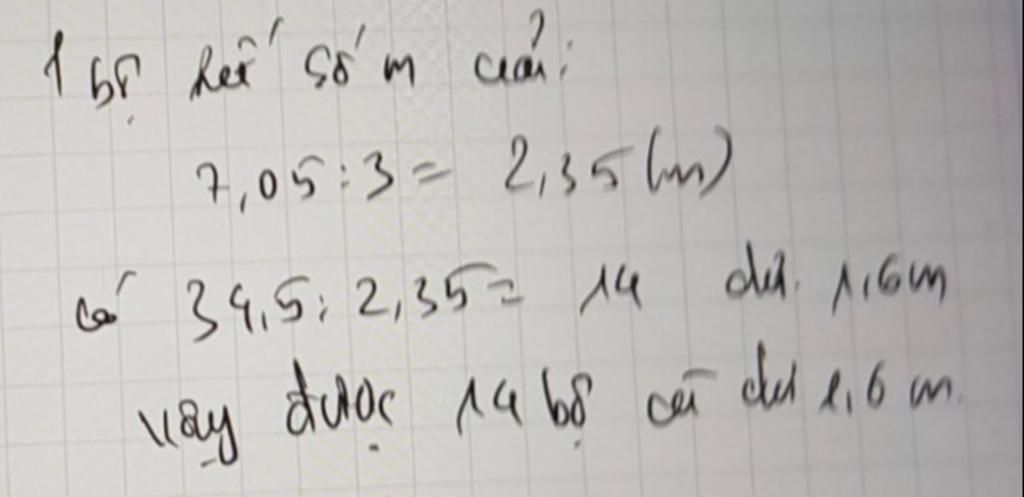 1 bộ hết số m vải:
7,05 : 3 = 2,35 (m)
Có 34,5 : 2,35 = 14 dư 1,6m
Vậy được 14 bộ và dư 1,6 m.